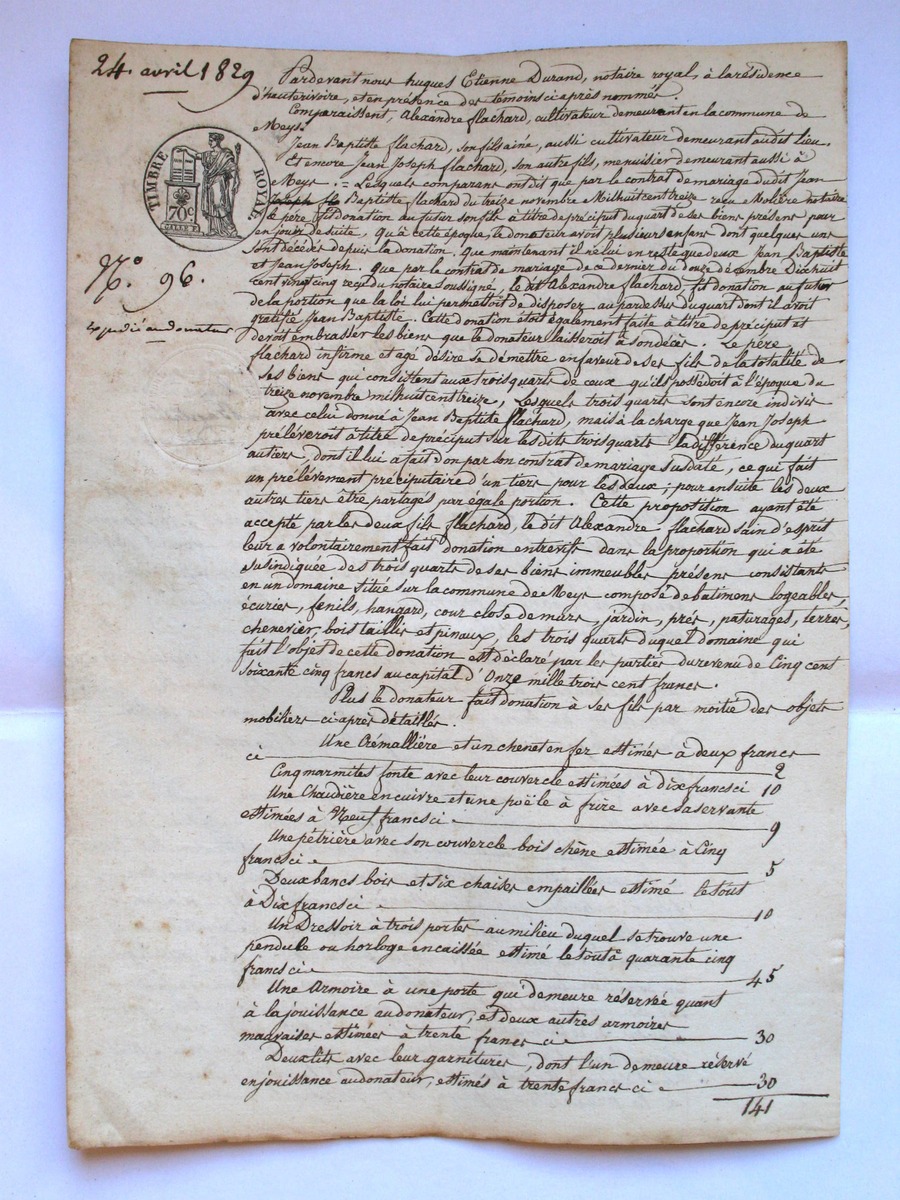 24. avril 1829
TIMBRE ROYAL
70c
N.o 96.
expedié au donateur
Pardevant nous hugues Etienne Durand, notaire royal, à la résidence
d'hauterivoire, et en présence des témoins ci après nommés.
Comparaissent, Alexandre flachard, cultivateur demeurant en la commune de
Meys.
Jean Baptiste flachard, son fils ainé, aussi cultivateur demeurant audit lieu.
Et encore Jean Joseph flachard, son autre fils, menuisier demeurant aussi à
Meys. = Lesquels comparans ont dit que par le contrat de mariage dudit Jean
Joseph fla Baptiste flachard du treize novembre Milhuitcent treize, reçu Molière notaire
le père fit donation au futur son fils à titre de préciput du quart de ses biens présens pour
en jouir de suite, qu'à cette époque, le donateur avoit plusieurs enfans dont quelques uns
sont décédés depuis la donation. Que maintenant il ne lui en reste que deux Jean Baptiste
et Jean Joseph. que par le contrat de mariage de ce dernier du douze décembre Dixhuit
cent vingt cinq reçu du notaire soussigné, le dit Alexandre flachard, fit donation au futur
de la portion que la loi lui permettoit de disposer, au pardessus du quart dont il avoit
gratifié Jean Baptiste. Cette donation étoit également faite à titre de préciput et
devoit embrasser les biens que le donateur laisseroit à son décès. Le père
flachard infirme et agé désire se démettre en faveur de ses fils de la totalité de
ses biens qui consistent aux trois quarts de ceux qu'il possèdoit à l'époque du
treize novembre milhuitcent treize, Lesquels trois quarts sont encore indivis
avec celui donné à Jean Baptiste flachard, mais à la charge que Jean Joseph
préléveroit à titre de préciput sur les dits trois quarts la différence du quart
au tiers, dont il lui a fait don par son contrat de mariage susdaté, ce qui fait
un prélèvement préciputaire d'un tiers pour les deux; pour ensuite les deux
autres tiers être partagés par égale portion. Cette proposition ayant été
accepté par les deux fils flachard, le dit Alexandre flachard sain d'esprit
leur a volontairement fait donation entrevifs dans la proportion qui a été
susindiquée des trois quarts de ses biens immeubles présens consistants
en un domaine situé sur la commune de Meys composé de batimens logeables,
écuries, fenils, hangard, cour close de murs, jardin, prés, paturages, terres,
chenevier, bois taillis et pinaux, les trois quarts duquel domaine qui
fait l'objet de cette donation est déclaré par les parties du revenu de Cinq cent
soixante cinq francs au capital d'Onze mille trois cent francs.
Plus le donateur fait donation à ses fils par moitié des objets
mobiliers ci après détaillés.
Une Crémallière et un chenet en fer estimés à deux francs
ci 2
Cinq marmites fonte avec leur couvercle estimées à dix francs ci 10
Une Chaudière en cuivre et une poële à frire avec sa servante
estimées à Neuf francs ci 9
Une pétrière avec son couvercle bois chêne estimée à Cinq
francs ci 5
Deux bancs bois et six chaises empaillées estimé le tout
à Dix francs ci 10
Un Dressoir à trois portes au milieu duquel se trouve une
pendule ou horloge encaissée estimé le tout à quarante cinq
francs ci 45
Une Armoire à une porte qui demeure réservée quant
à la jouissance au donateur, et deux autres armoires
mauvaises estimées à trente francs ci 30
Deux lits avec leur garnitures, dont l'un demeure réservé
en jouissance au donateur, estimés à trente francs ci 30
141